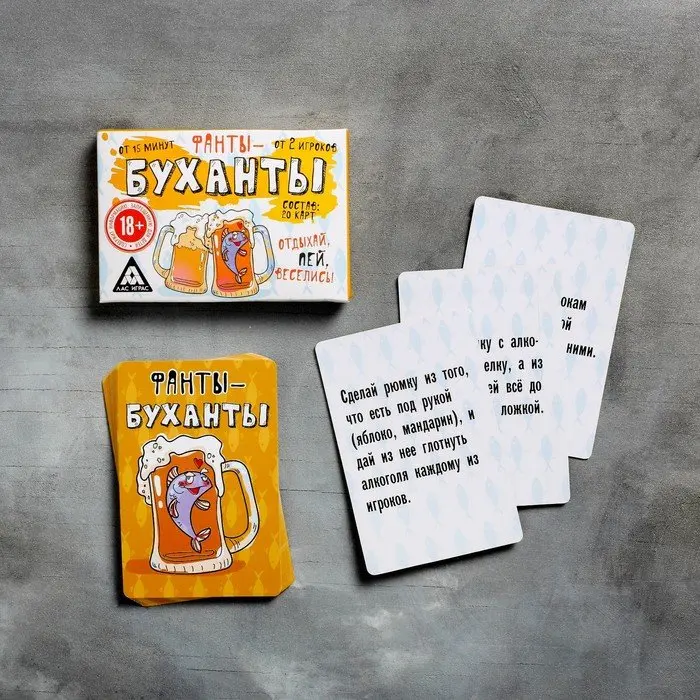 ОТ 15 МИНУТ
ФАНТЫ—
ОТ 2 ИГРОКОВ
БУХАНТЫ
СОСТАВ:
20 КАРТ
18+
ОТДЫХАЙ,
ПЕЙ,
ВЕСЕЛИСЬ!
ЛАС ИГРАС
ФАНТЫ—
БУХАНТЫ
Сделай рюмку из того,
что есть под рукой
(яблоко, мандарин), и
дай из нее глотнуть
алкоголя каждому из
игроков.
ку с алко-
елку, а из
ей всё до
ложкой.
окам
ой
ними.